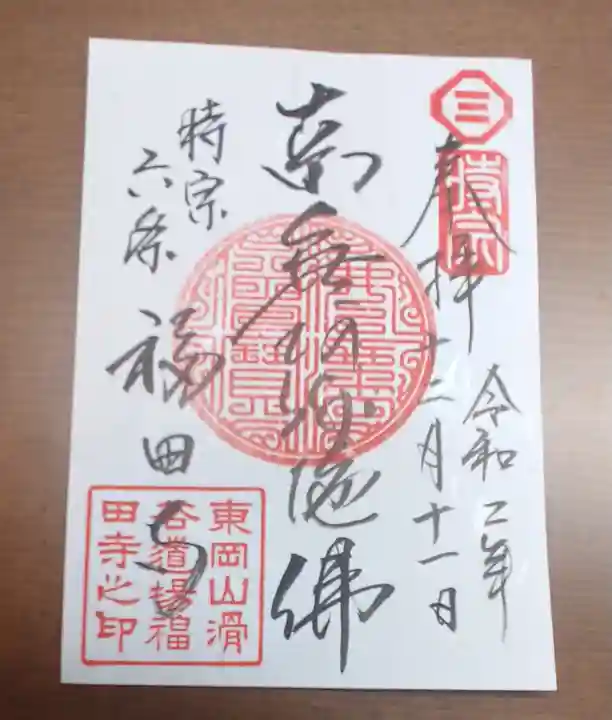 三
時宗
奉拝
令和二年
十二月十一日
南無阿弥陀佛
時宗
六条
福田寺
東岡山滑
谷道場福
田寺之印